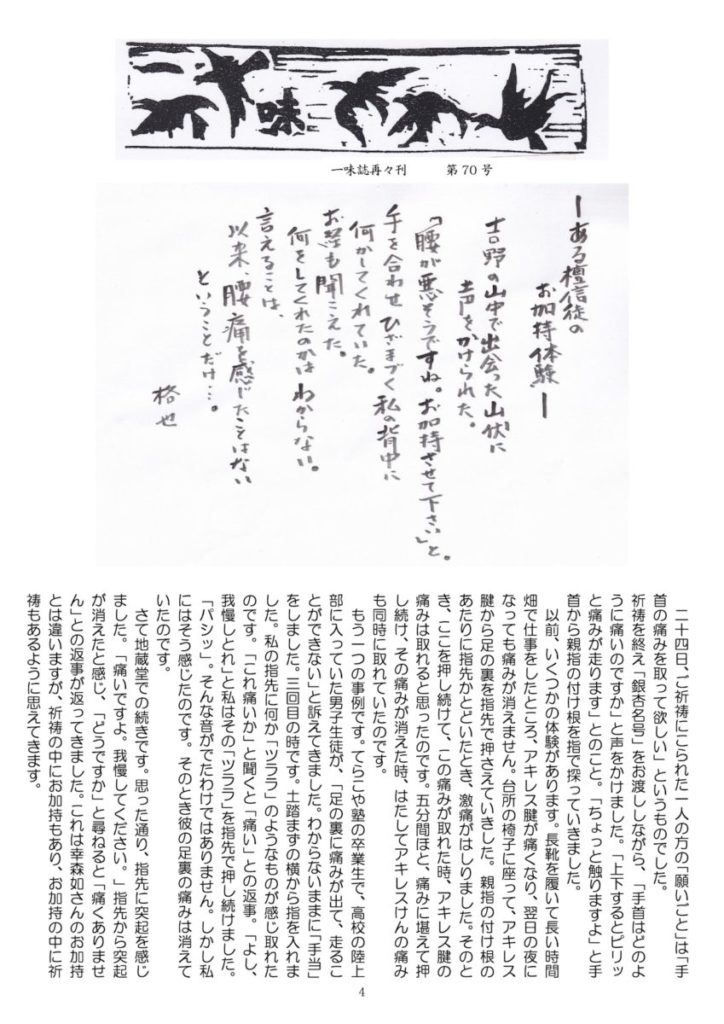 一味
一味誌再々刊　　第70号
ーある檀信徒の
お加持体験ー
吉野の山中で出会った山伏に
声をかけられた。
「腰が悪そうですね。お加持させて下さい」と。
手を合わせ ひざまづく私の背中に
何かしてくれていた。
お経も聞こえた。
何をしてくれたのかは わからない。
言えることは、
以来、腰痛を感じたことはない
ということだけ…。
格也
二十四日、ご祈祷にこられた一人の方の「願いごと」は「手
首の痛みを取って欲しい」というものでした。
祈祷を終え「銀杏名号」をお渡ししながら、「手首はどのよ
うに痛いのですか」と声をかけました。「上下するとピリッ
と痛みが走ります」とのこと。「ちょっと触りますよ」と手
首から親指の付け根を指で探っていきました。
以前、いくつかの体験があります。長靴を履いて長い時間
畑で仕事をしたところ、アキレス腱が痛くなり、翌日の夜に
なっても痛みが消えません。台所の椅子に座って、アキレス
腱から足の裏を指先で押さえていきました。親指の付け根の
あたりに指先かとどいたとき、激痛がはしりました。そのと
き、ここを押し続けて、この痛みが取れた時、アキレス腱の
痛みは取れると思ったのです。五分間ほど、痛みに堪えて押
し続け、その痛みが消えた時、はたしてアキレスけんの痛み
も同時に取れていたのです。
もう一つの事例です。てらこや塾の卒業生で、高校の陸上
部に入っていた男子生徒が、「足の裏に痛みが出て、走るこ
とができない」と訴えてきました。わからないままに「手当」
をしました。三回目の時です。土踏まずの横から指を入れま
した。私の指先に何か「ツララ」のようなものが感じ取れた
のです。「これ痛いか」と聞くと「痛い」との返事。「よし、
我慢しとれ」と私はその「ツララ」を指先で押し続けました。
「パシッ」。そんな音がでたわけではありません。しかし私
にはそう感じたのです。そのとき彼の足裏の痛みは消えて
いたのです。
さて地蔵堂での続きです。思った通り、指先に突起を感じ
ました。「痛いですよ。我慢してください。」指先から突起
が消えたと感じ、「どうですか」と尋ねると「痛くありませ
ん」との返事が返ってきました。これは幸森如さんのお加持
とは違いますが、祈祷の中にお加持もあり、お加持の中に祈
祷もあるように思えてきます。
4